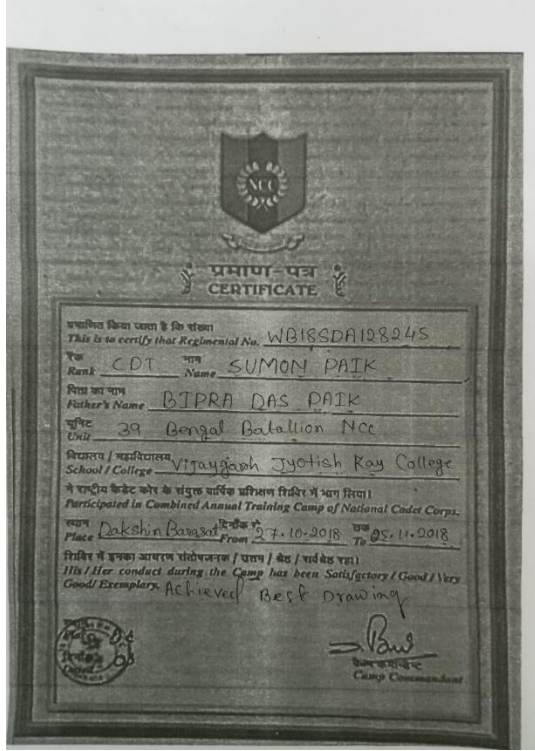 NCC
प्रमाण-पत्र
CERTIFICATE
प्रमाणित किया जाता है कि संख्या
This is to certify that Regimental No. WB18SDA128245
रैंक नाम
Rank CDT Name SUMON PAIK
पिता का नाम
Father's Name BIPRA DAS PAIK
यूनिट
Unit 39 Bengal Batallion Ncc
विद्यालय / महाविद्यालय
School / College Vijaygarh Jyotish Ray College
ने राष्ट्रीय कैडेट कोर के संयुक्त वार्षिक प्रशिक्षण शिविर में भाग लिया।
Participated in Combined Annual Training Camp of National Cadet Corps.
स्थान दिनाँक से तक
Place Dakshin Barasat From 27.10.2018 To 05.11.2018
शिविर में इनका आचरण संतोषजनक / उत्तम / श्रेष्ठ / सर्वश्रेष्ठ रहा।
His / Her conduct during the Camp has been Satisfactory / Good / Very
Good/ Exemplary. Achieved Best Drawing
कैम्प कमान्डेन्ट
Camp Commandant